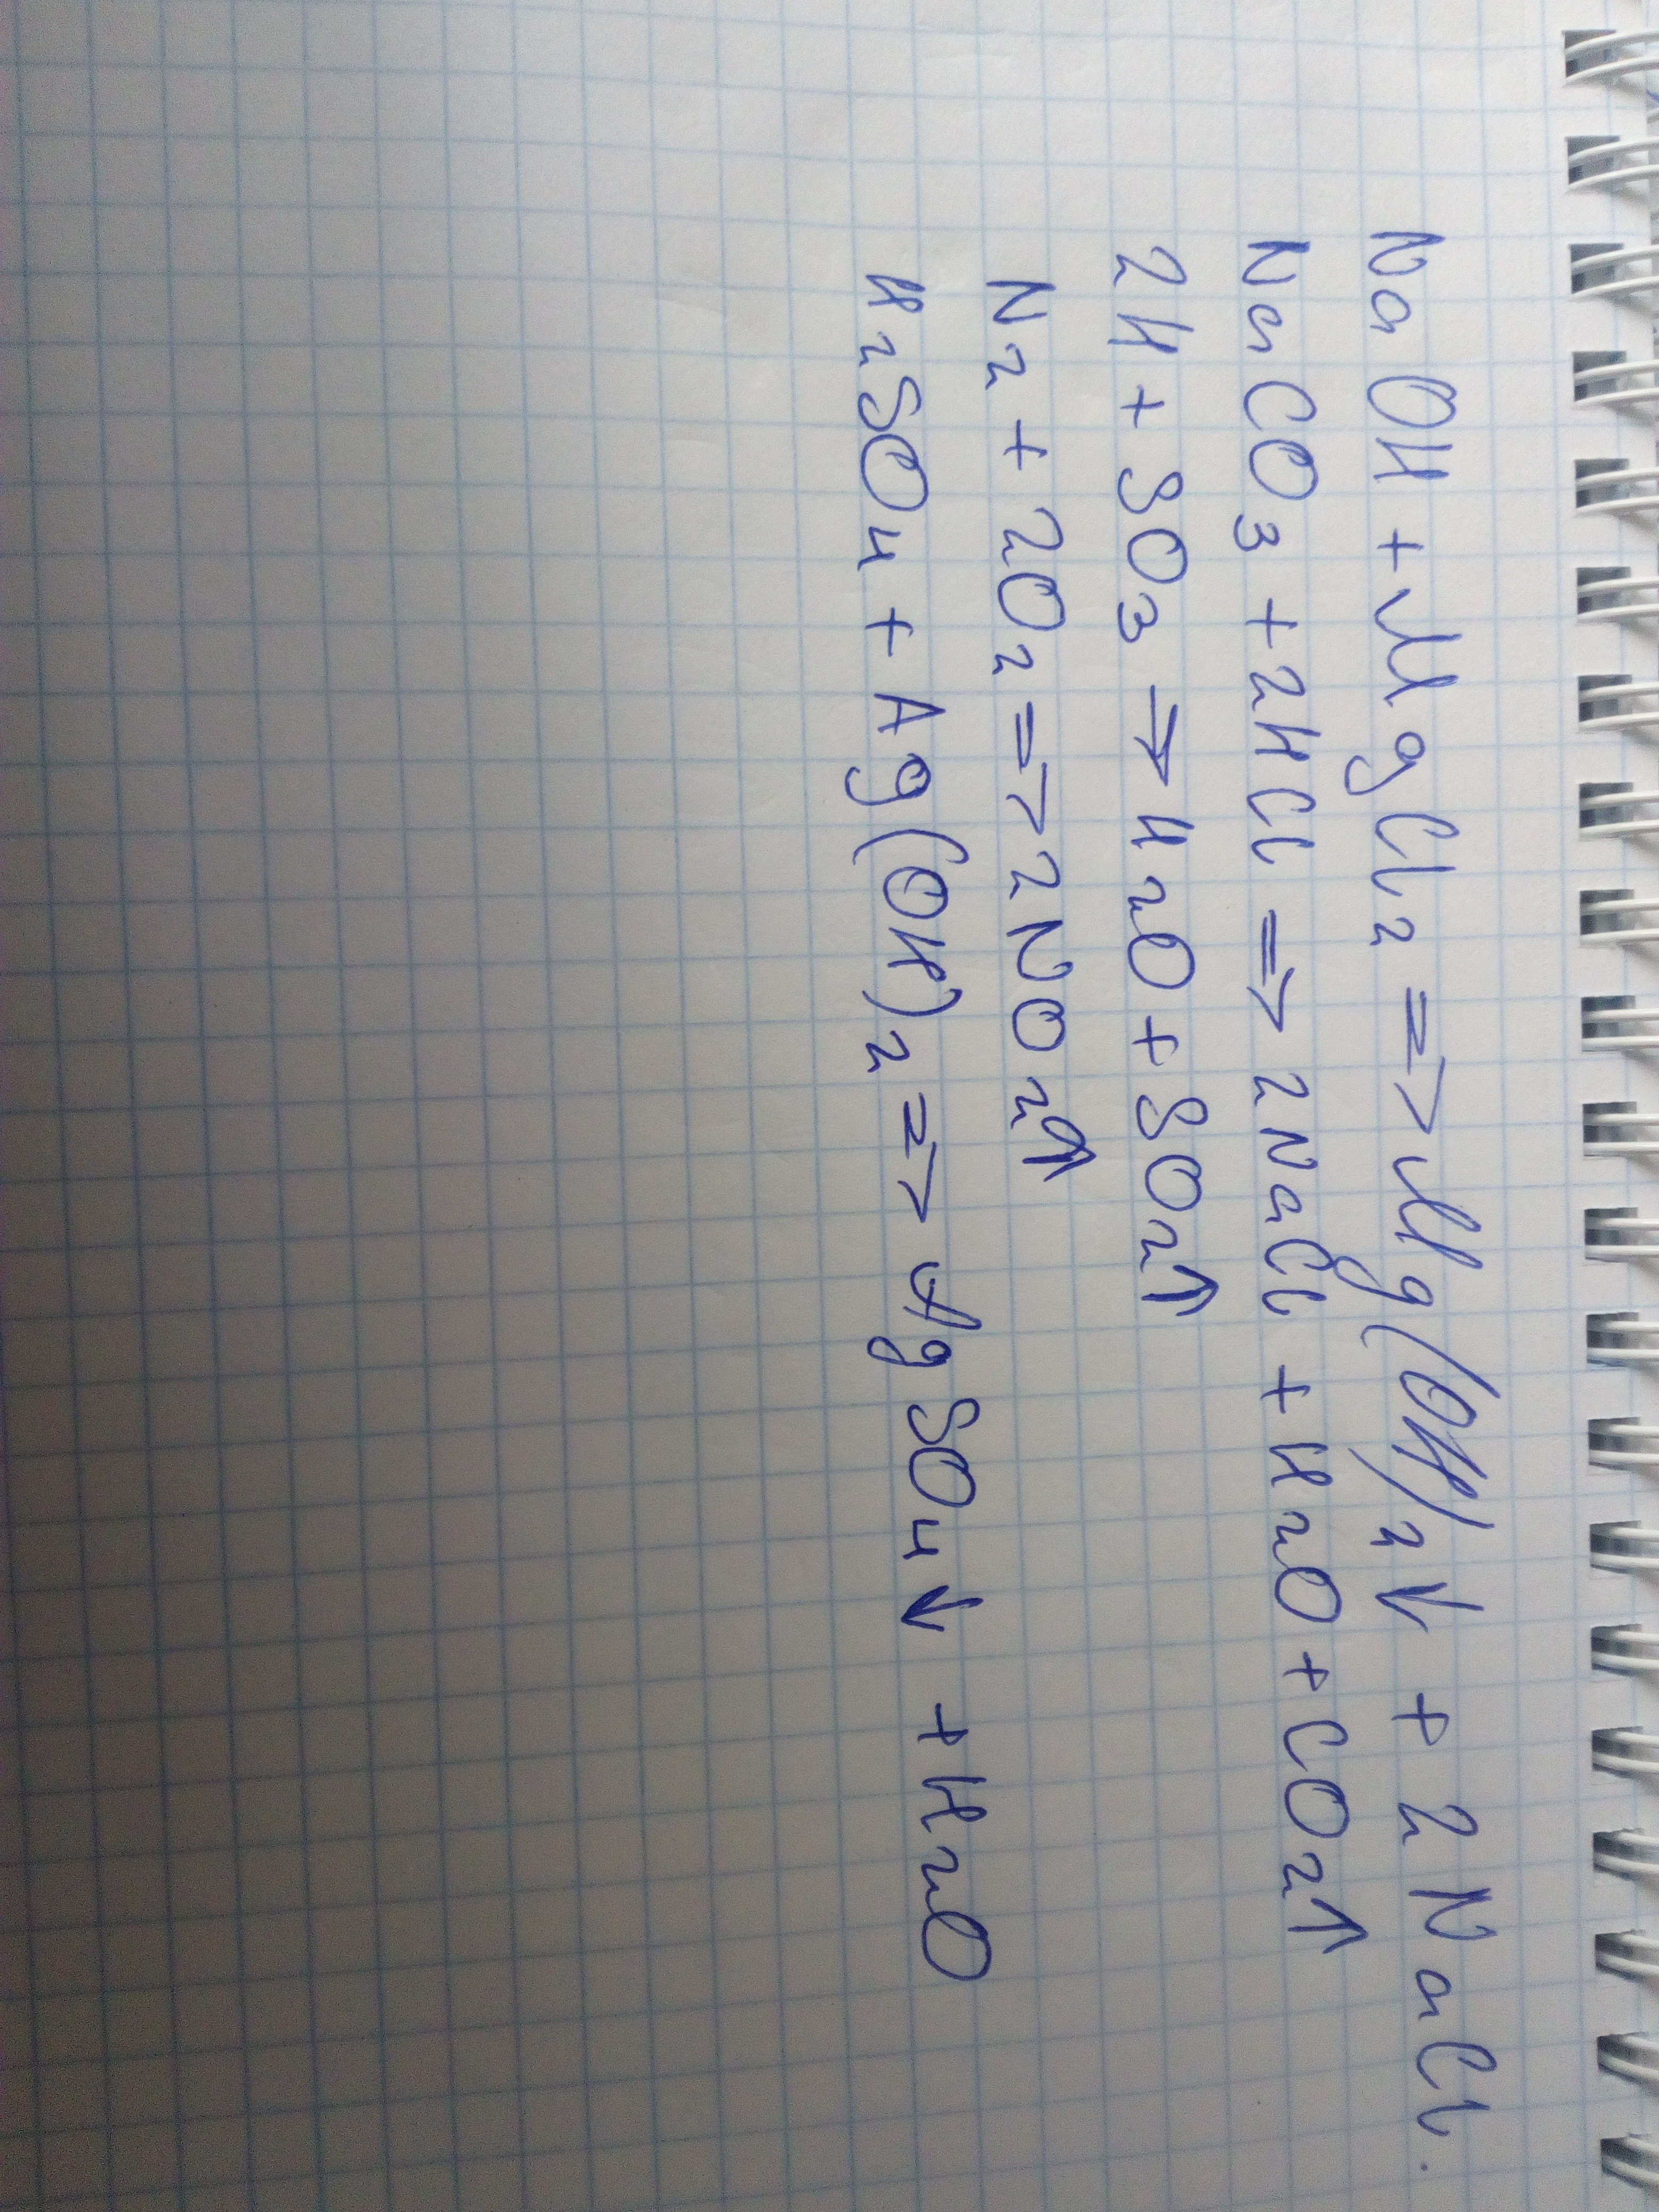 NaOH + MgCl₂ => Mg(OH)₂↓ + 2NaCl.
NaCO₃ + 2HCl => 2NaCl + H₂O + CO₂↑
2H + SO₃ → H₂O + SO₂↑
N₂ + 2O₂ => 2NO₂↑
H₂SO₄ + Ag(OH)₂ => AgSO₄↓ + H₂O